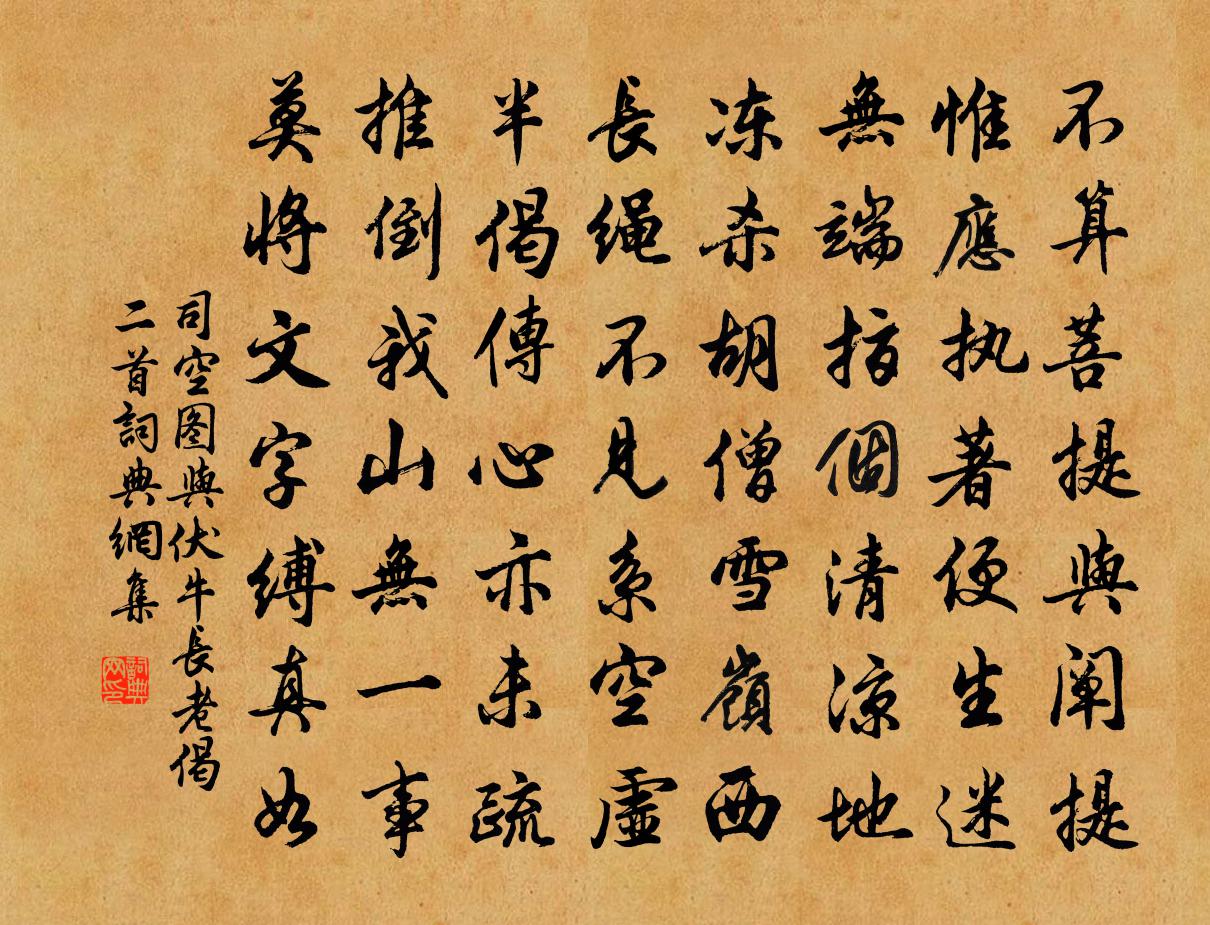 不算菩提與阐提
惟應执著便生迷
無端指個清凉地
冻杀胡僧雪嶺西
長绳不見系空虛
半偈傳心亦未疏
推倒我山無一事
莫將文字缚真如
司空图與伏牛長老偈
二首詞典網集
詞典
网印